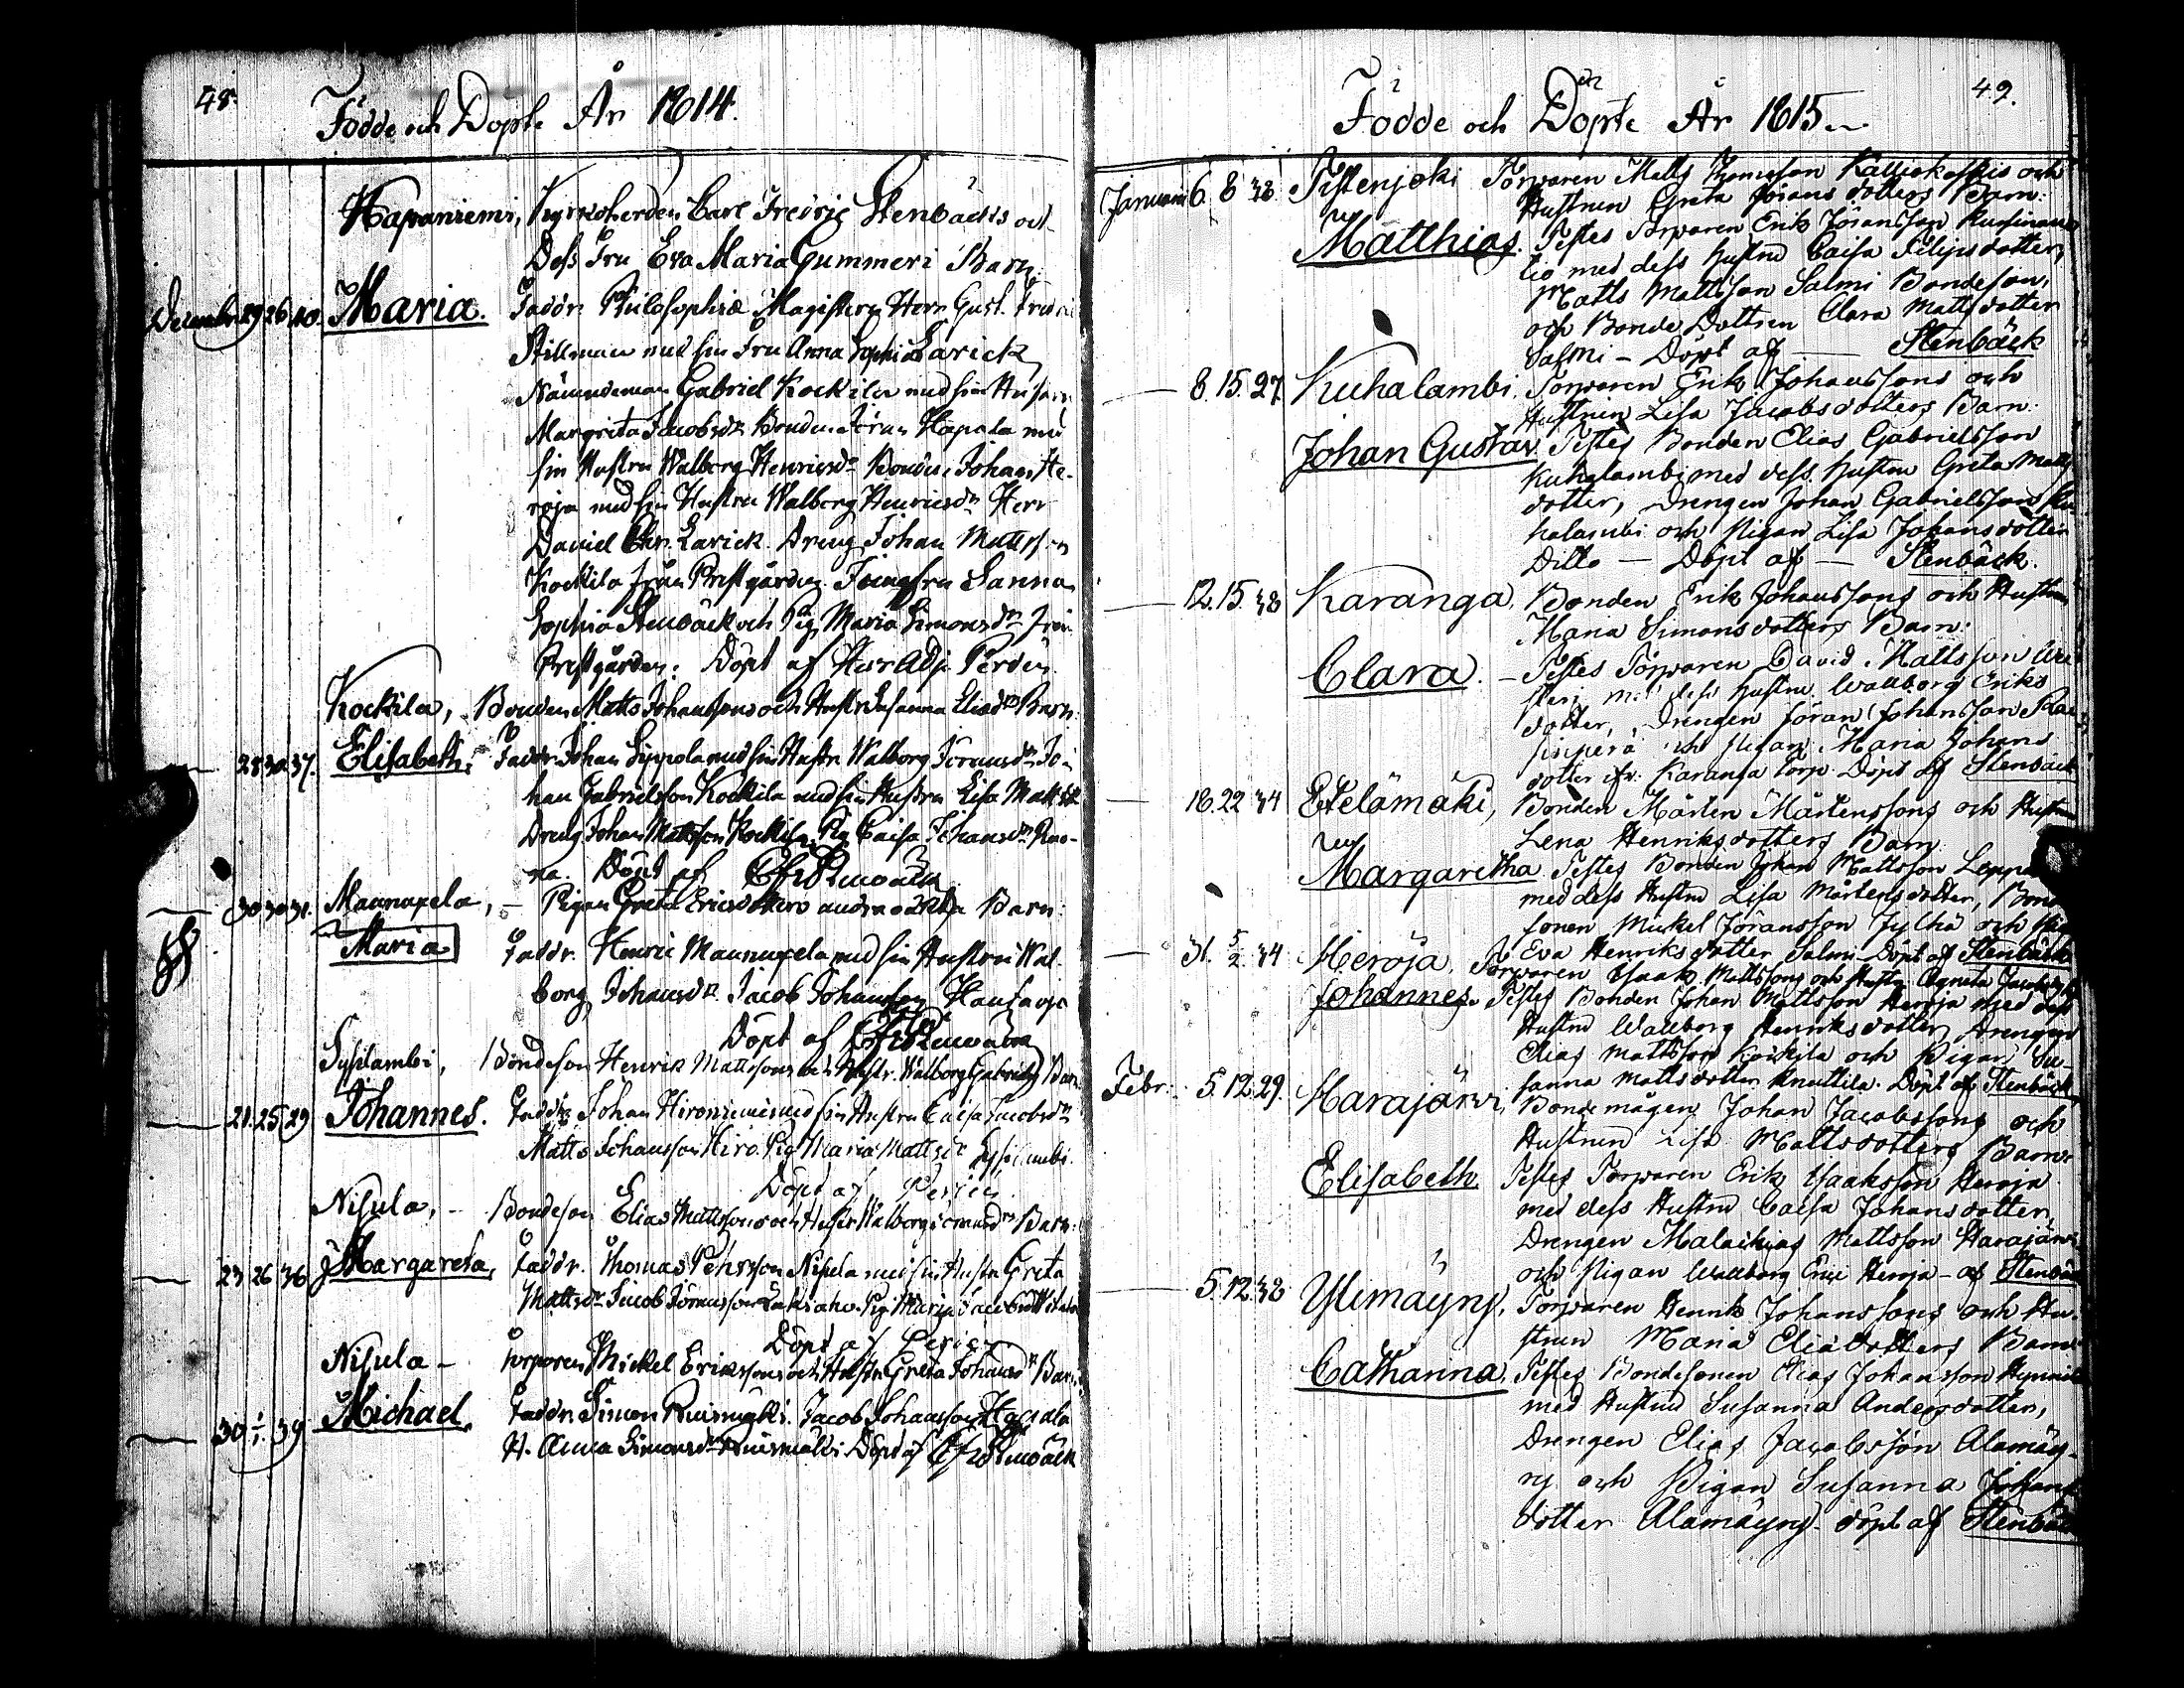 48.
Födde och Döpte År 1814.
Hapaniemi, Kyrkoherden Carl Fredric Stenbäcks och
Dess Fru Eva Maria Gummeri Barn:
Decembr. 19 26 40. Maria. Faddr. Philosophiæ Magistern Herr Gust. Fredric
Stillman med sin Fru Anna Sophia Larick
Nämndeman Gabriel Kockila med sin Hustru
Margreta Jacobsdr Bonden Jöran Hapala med
sin Hustru Walborg Henricsdr Bonden Johan He-
roja med sin Hustru Walborg Henricsdr Herr
Daniel Chr. Larick. Dreng Johan Mattsson
Kockila från Prestgården. Jungfru Sanna
Sophia Stenbäck och Pig. Maria Simonsdr från
Prestgården: Döpt af Herr Adj. Perdén
Kockila, Bonden Matts Johanssons och Hustr Susanna Eliædr Barn:
28 30 37. Elisabeth. Faddr. Johan Sippola med sin Hustr Walborg Jöransdr Jo-
han Gabrielsson Kockila med sin Hustru Lisa Mattsdr
Dreng Johan Mattsson Kockila, Pig. Caisa Johansdr
na. Döpt af Stenbäck
30 30 31. Maunupela, - Pigan Greta Ericsdotters andra oäkta Barn:
Maria Faddr. Henric Maunupela med sin Hustru Wal-
borg Johansdr. Jacob Johansson
Döpt af Stenbäck
Sysilambi, Bondeson Henrik Mattssons och Hustr. Walborg Gabrielsdr Barn
21. 25 29 Johannes. Faddr. Johan Hironiemi med sin Hustru Caisa Jacobsdr
Matts Johansson Hiro. Pig Maria Mattsdr Sysilambi.
Döpt af Perdén
Nisula, - Bondeson Elias Mattssons och Hustr Walborg Simonsdr Barn:
23 26 36 Margareta, Faddr. Thomas Pehrsson Nisula med sin Hustru Greta
Mattsdr Jacob Jöransson Pig. Maria Jacobsdr
Döpt af Perdén
Nisula - Torparen Mickel Erikssons och Hustr Greta Johansdr Barn:
30 1/1. 39 Michael. Faddr. Simon Ruismäki. Jacob Johansson Hapala
H. Anna Simonsdr Ruismäki Döpt af Stenbäck
49.
Födde och Döpte År 1815.
Januari 6. 8. 38. Pistenjoki Torparen Matts Thomsson Kalliokoskis och
Hustrun Greta Jörans dotters Barn:
Matthias. Testes Torparen Erik Jöransson
lio med dess hustru Caisa Filipsdotter,
Matts Mattsson Salmi Bondeson,
och Bonde Dottren Clara Mattsdotter
Salmi - Döpt af — Stenbäck
— 8. 15. 27. Kuhalambi, Torparen Erik Johanssons och
Hustrun Lisa Jacobsdotters Barn:
Johan Gustav. Testes Bonden Elias Gabrielsson
Kuhalambi med dess hustru Greta Matts
dotter, Drengen Johan Gabrielsson Ku-
halambi och Pigan Lisa Johansdotter
Ditto — Döpt af — Stenbäck.
— 12. 15. 38 Karanga, Bonden Erik Johanssons och Hustrun
Maria Simonsdotters Barn:
Clara. - Testes Torparen David Mattsson
med dess hustru Wallborg Eriks
dotter, Drengen Jöran Johansson
och Pigan Maria Johans
dotter ifr: Karanga Torp. Döpt af Stenbäck
— 18. 22 34 Etelämäki, Bonden Mårten Mårtenssons och Hustrun
Lena Henriksdotters Barn
Margaretha Testes Bonden Johan Mattsson
med dess Hustru Lisa Mårtensdotter, Bonde
sonen Mickel Jöransson Jylhä och Pigan
Eva Henriksdotter Salmi - Döpt af Stenbäck
— 31. 5/2 34 Heroja. Torparen Isaak Mattssons och Hustru Agneta Jacobsdr
Johannes. Testes Bonden Johan Mattsson Heroja med dess
Hustru Wallborg Henriksdotter, Drengen
Elias Mattsson Kockila och Pigan Su-
sanna Mattsdotter Knuttila. Döpt af Stenbäck
Febr. 5. 12. 29. Harajärvi, Bondemågen Johan Jacobssons och
Hustrun Lisa Mattsdotters Barn:
Elisabeth Testes Torparen Erik Isaaksson Heroja
med dess Hustru Caisa Johansdotter,
Drengen Malachias Mattsson Harajärvi
och Pigan Wallborg Eric Heroja - af Stenbäck
— 5. 12. 38 Ylimäyry, Torparen Henrik Johanssons och Hu-
strun Maria Eliædotters Barn
Catharina, Testes Bondesonen Elias Johansson
med Hustru Susanna Andersdotter,
Drengen Elias Jacobsson Alamäy-
ry och Pigan Susanna Johans
dotter Alamäyry. döpt af Stenbäck